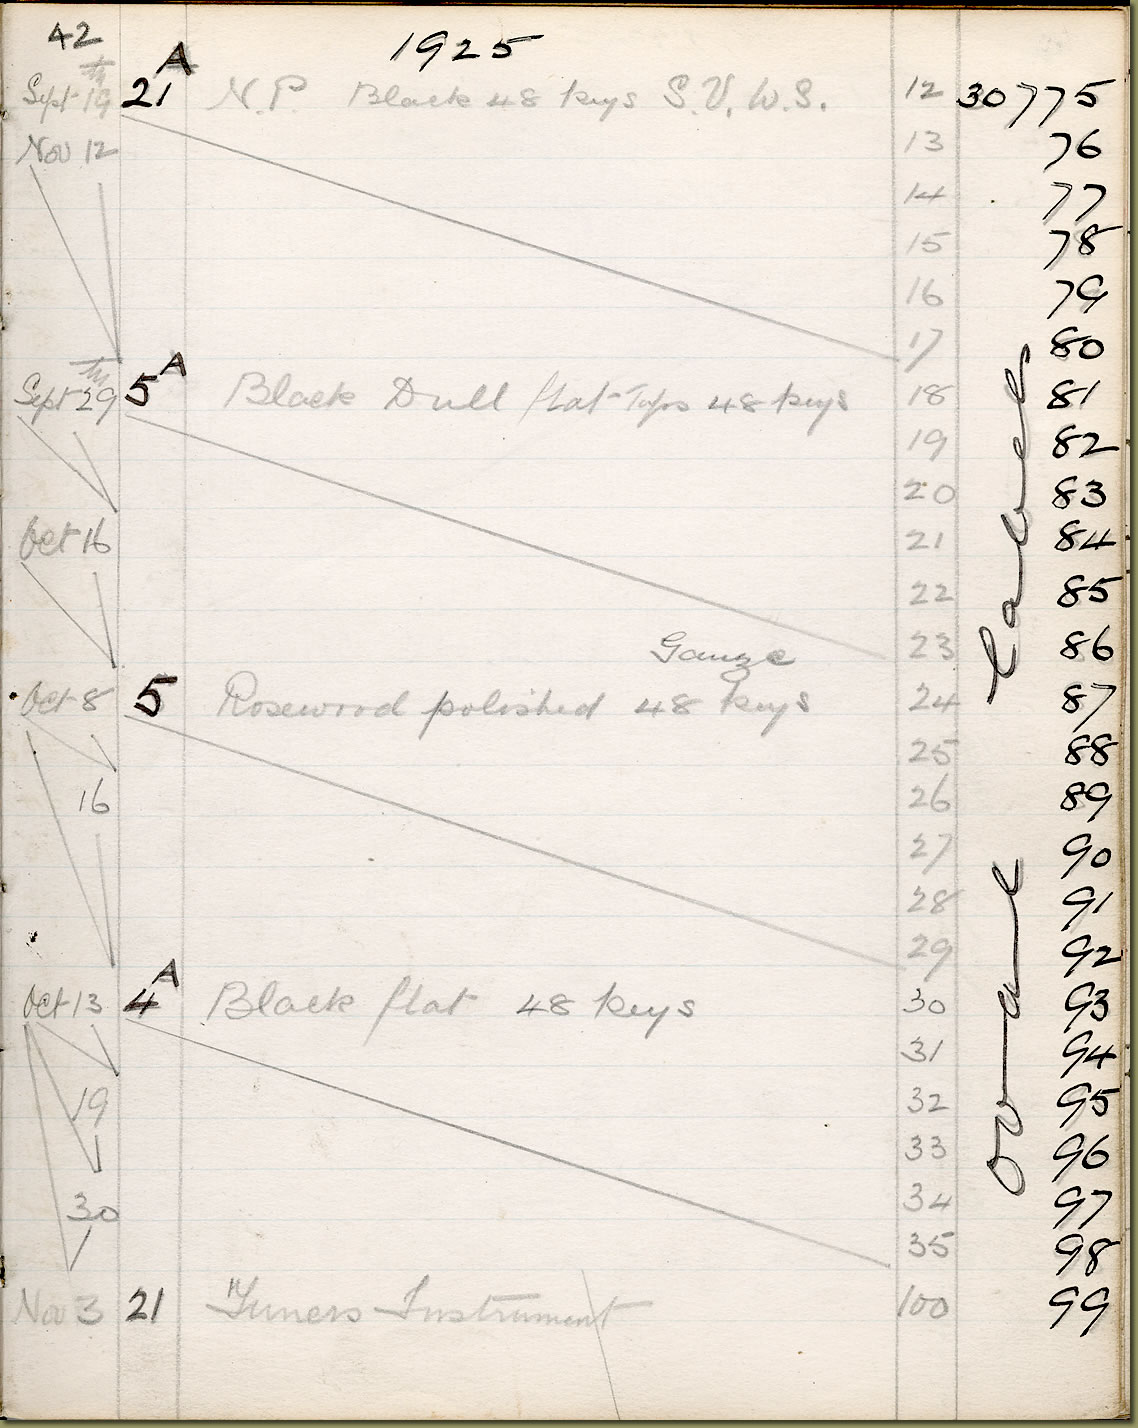 42 1925
Sept 19th 21A N.P Black 48 keys S.V.W.S. 12 30775
Nov 12 13 76
14 77
15 78
16 79
17 80
Sept 29th 5A Black Dull flat Tops 48 keys 18 81
19 82
20 83
Oct 16 21 84
22 85
Gauze 23 86
Oct 8 5 Rosewood polished 48 keys 24 87
25 88
16 26 89
27 90
28 91
29 92
Oct 13 4A Black flat 48 keys 30 93
31 94
19 32 95
33 96
30 34 97
35 98
Nov 3 21 Tuners Instrument 100 99
oval labels